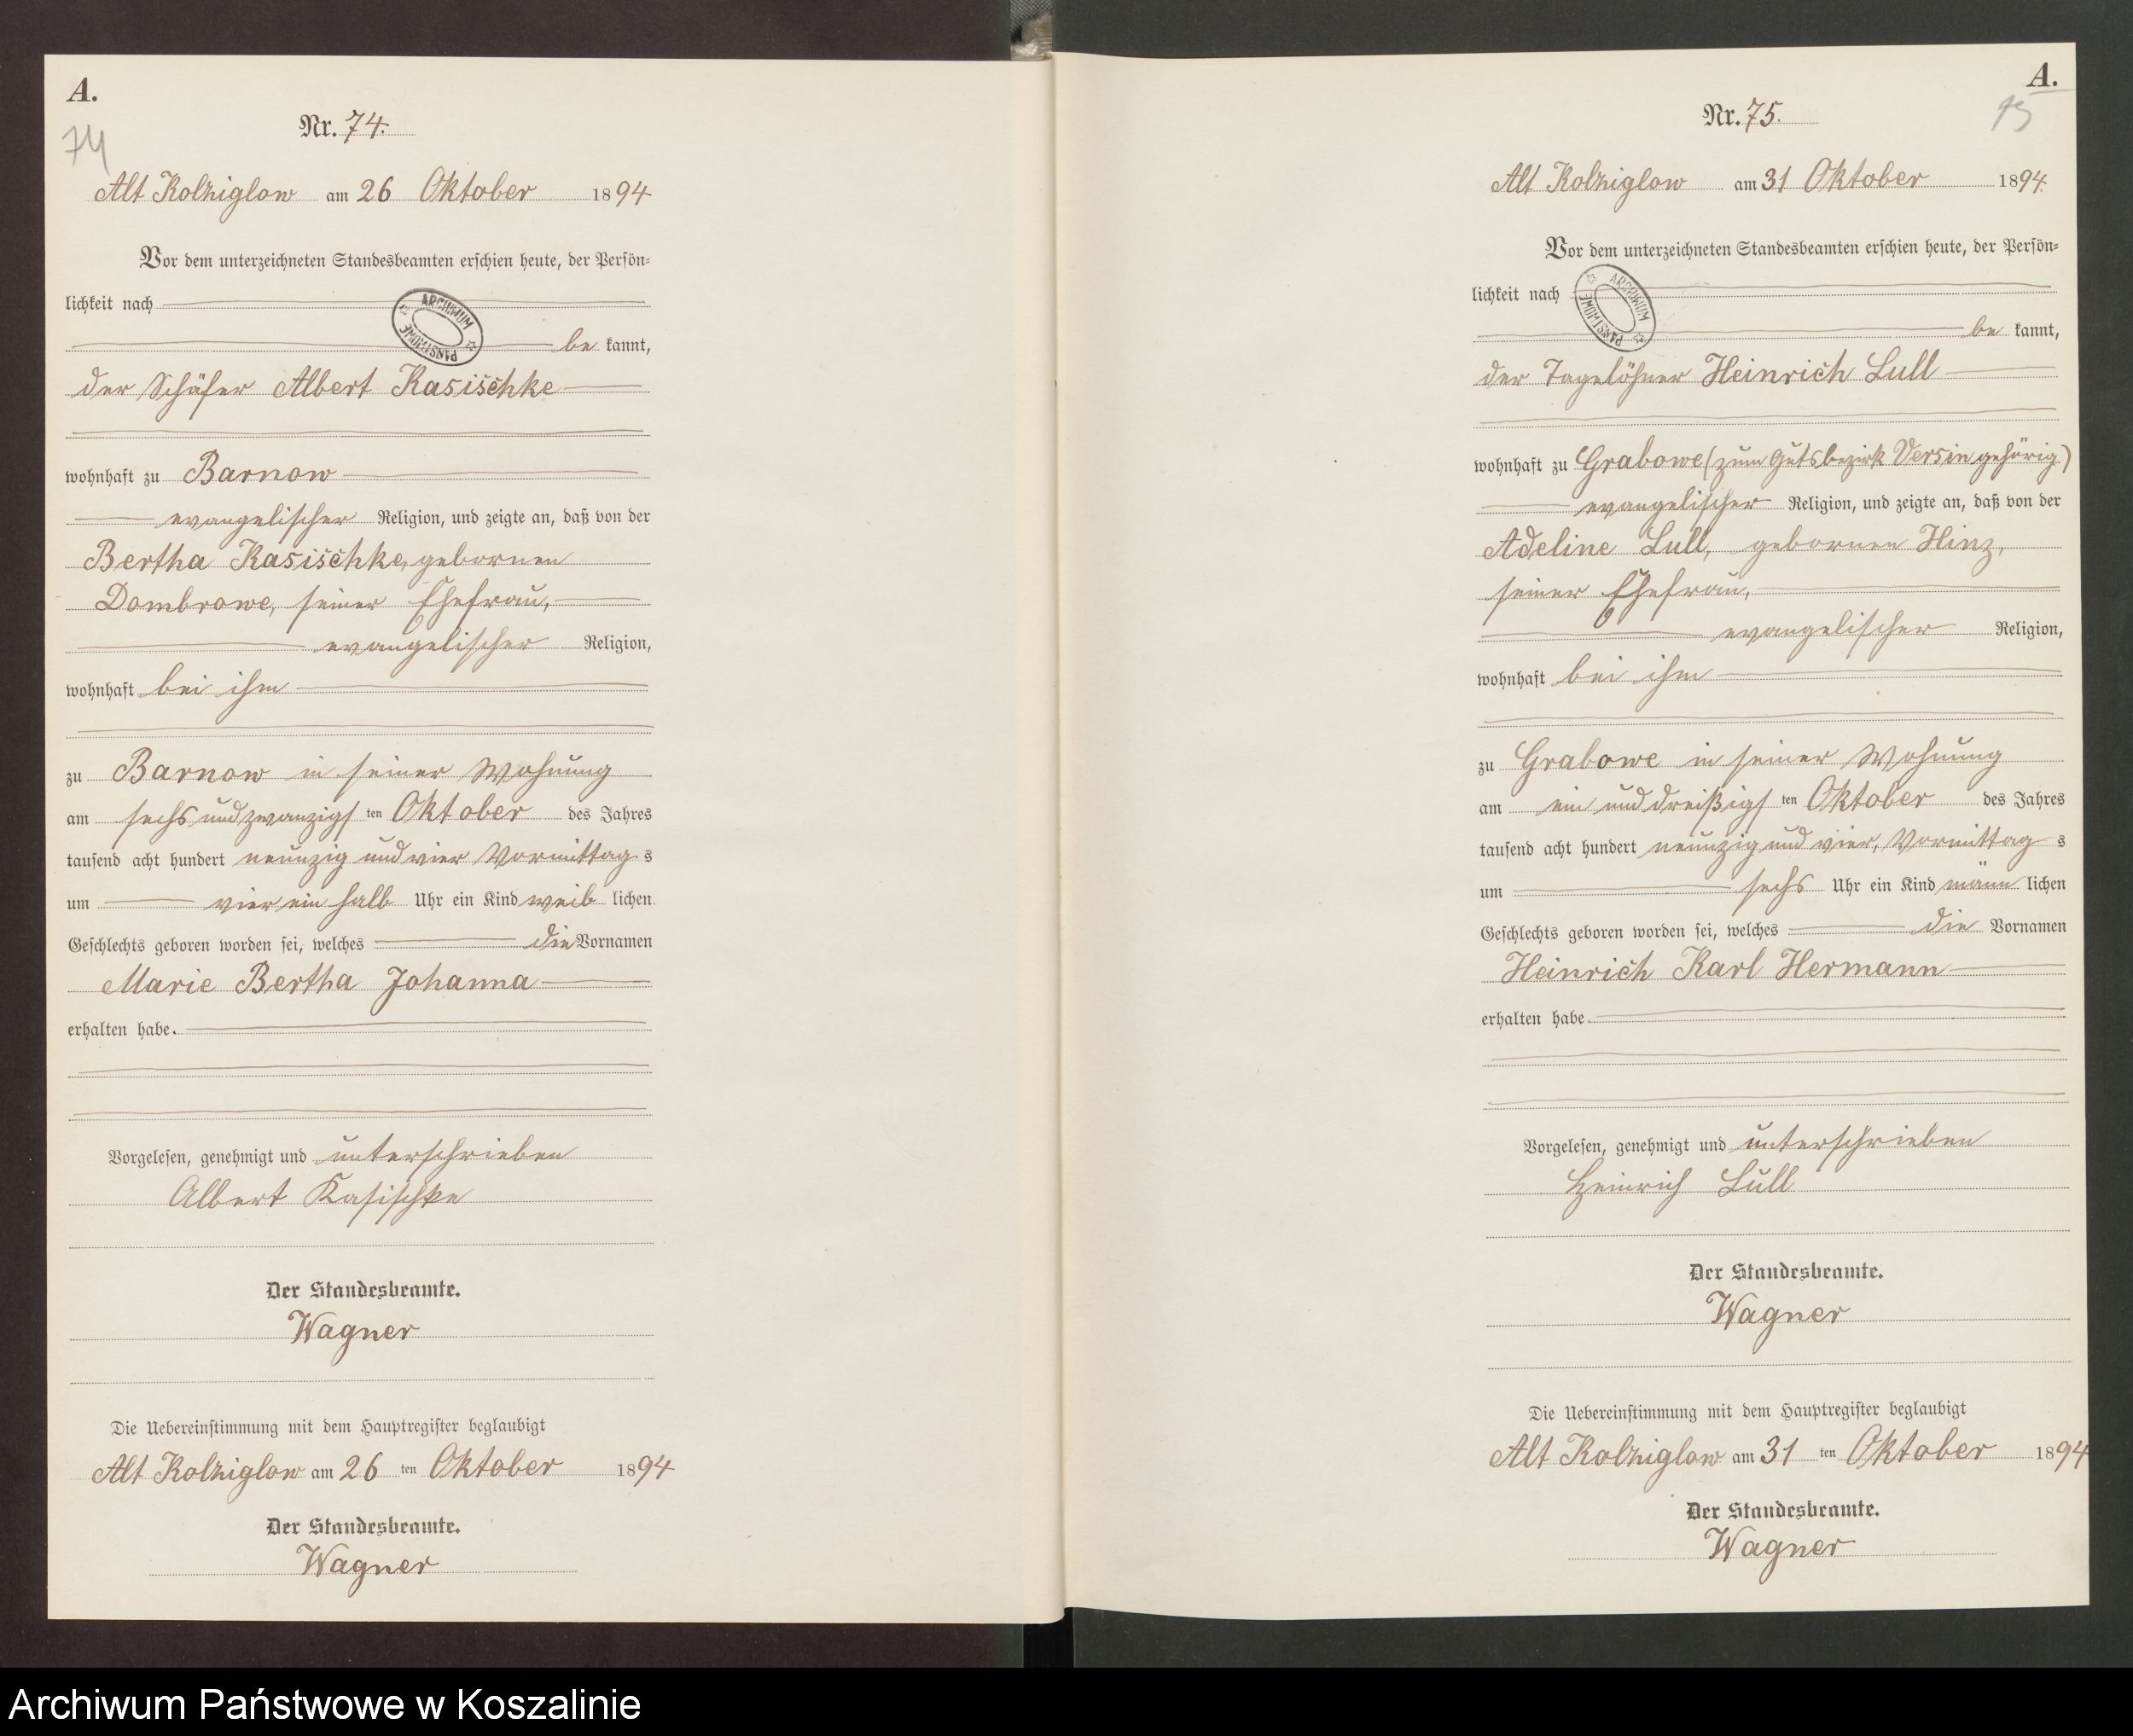 A.
74
Nr. 74.
Alt Kolziglow am 26 Oktober 1894
Vor dem unterzeichneten Standesbeamten erschien heute, der Persön-
lichkeit nach
be kannt,
der Schäfer Albert Kasischke
wohnhaft zu Barnow
evangelischer Religion, und zeigte an, daß von der
Bertha Kasischke, gebornen
Dombrowe, seiner Ehefrau,
evangelischer Religion,
wohnhaft bei ihm
zu Barnow in seiner Wohnung
am sechs und zwanzigs ten Oktober des Jahres
tausend acht hundert neunzig und vier Vormittag s
um vier ein halb Uhr ein Kind weib lichen
Geschlechts geboren worden sei, welches die Vornamen
Marie Bertha Johanna
erhalten habe.
Vorgelesen, genehmigt und unterschrieben
Albert Kasischke
Der Standesbeamte.
Wagner
Die Uebereinstimmung mit dem Hauptregister beglaubigt
Alt Kolziglow am 26 ten Oktober 1894
Der Standesbeamte.
Wagner
ARCHIWUM PAŃSTWOWE
A.
75
Nr. 75.
Alt Kolziglow am 31 Oktober 1894.
Vor dem unterzeichneten Standesbeamten erschien heute, der Persön-
lichkeit nach
be kannt,
der Tagelöhner Heinrich Lull
wohnhaft zu Grabowe (zum Gutsbezirk Versin gehörig)
evangelischer Religion, und zeigte an, daß von der
Adeline Lull, gebornen Hinz,
seiner Ehefrau,
evangelischer Religion,
wohnhaft bei ihm
zu Grabowe in seiner Wohnung
am ein und dreißigs ten Oktober des Jahres
tausend acht hundert neunzig und vier, Vormittag s
um sechs Uhr ein Kind männ lichen
Geschlechts geboren worden sei, welches die Vornamen
Heinrich Karl Hermann
erhalten habe.
Vorgelesen, genehmigt und unterschrieben
Heinrich Lull
Der Standesbeamte.
Wagner
Die Uebereinstimmung mit dem Hauptregister beglaubigt
Alt Kolziglow am 31 ten Oktober 1894
Der Standesbeamte.
Wagner
ARCHIWUM PAŃSTWOWE
Archiwum Państwowe w Koszalinie